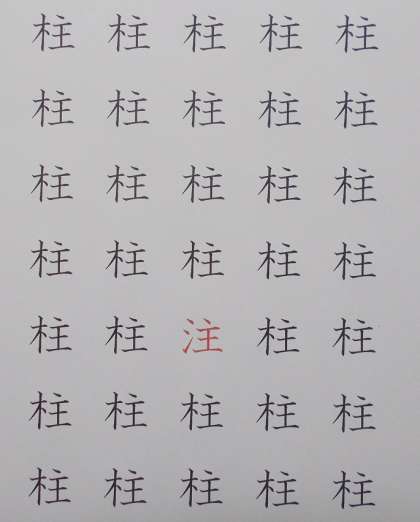 柱 柱 柱 柱 柱
柱 柱 柱 柱 柱
柱 柱 柱 柱 柱
柱 柱 柱 柱 柱
柱 柱 注 柱 柱
柱 柱 柱 柱 柱
柱 柱 柱 柱 柱